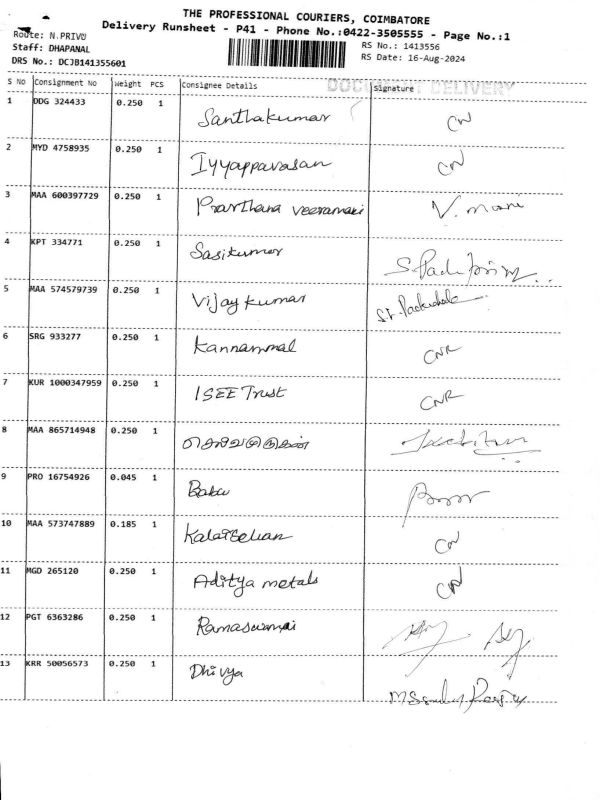 THE PROFESSIONAL COURIERS, COIMBATORE
Delivery Runsheet - P41 - Phone No.:0422-3505555 - Page No.:1
Route: N.PRIVU
Staff: DHAPANAL
DRS No.: DCJB141355601
RS No.: 1413556
RS Date: 16-Aug-2024
DOCUMENT DELIVERY
S No Consignment No Weight PCS Consignee Details Signature
1 DDG 324433 0.250 1 Santhakumar CN
2 MYD 4758935 0.250 1 Iyyappavasan CN
3 MAA 600397729 0.250 1 Prarthana veeramani V. mani
4 KPT 334771 0.250 1 Sasikumar
5 MAA 574579739 0.250 1 Vijay kumar
6 SRG 933277 0.250 1 Kannammal CNR
7 KUR 1000347959 0.250 1 ISEE Trust CNR
8 MAA 865714948 0.250 1
9 PRO 16754926 0.045 1 Babu
10 MAA 573747889 0.185 1 Kalaiselvan CN
11 MGD 265120 0.250 1 Aditya metals CN
12 PGT 6363286 0.250 1 Ramaswami
13 KRR 50056573 0.250 1 Dhivya